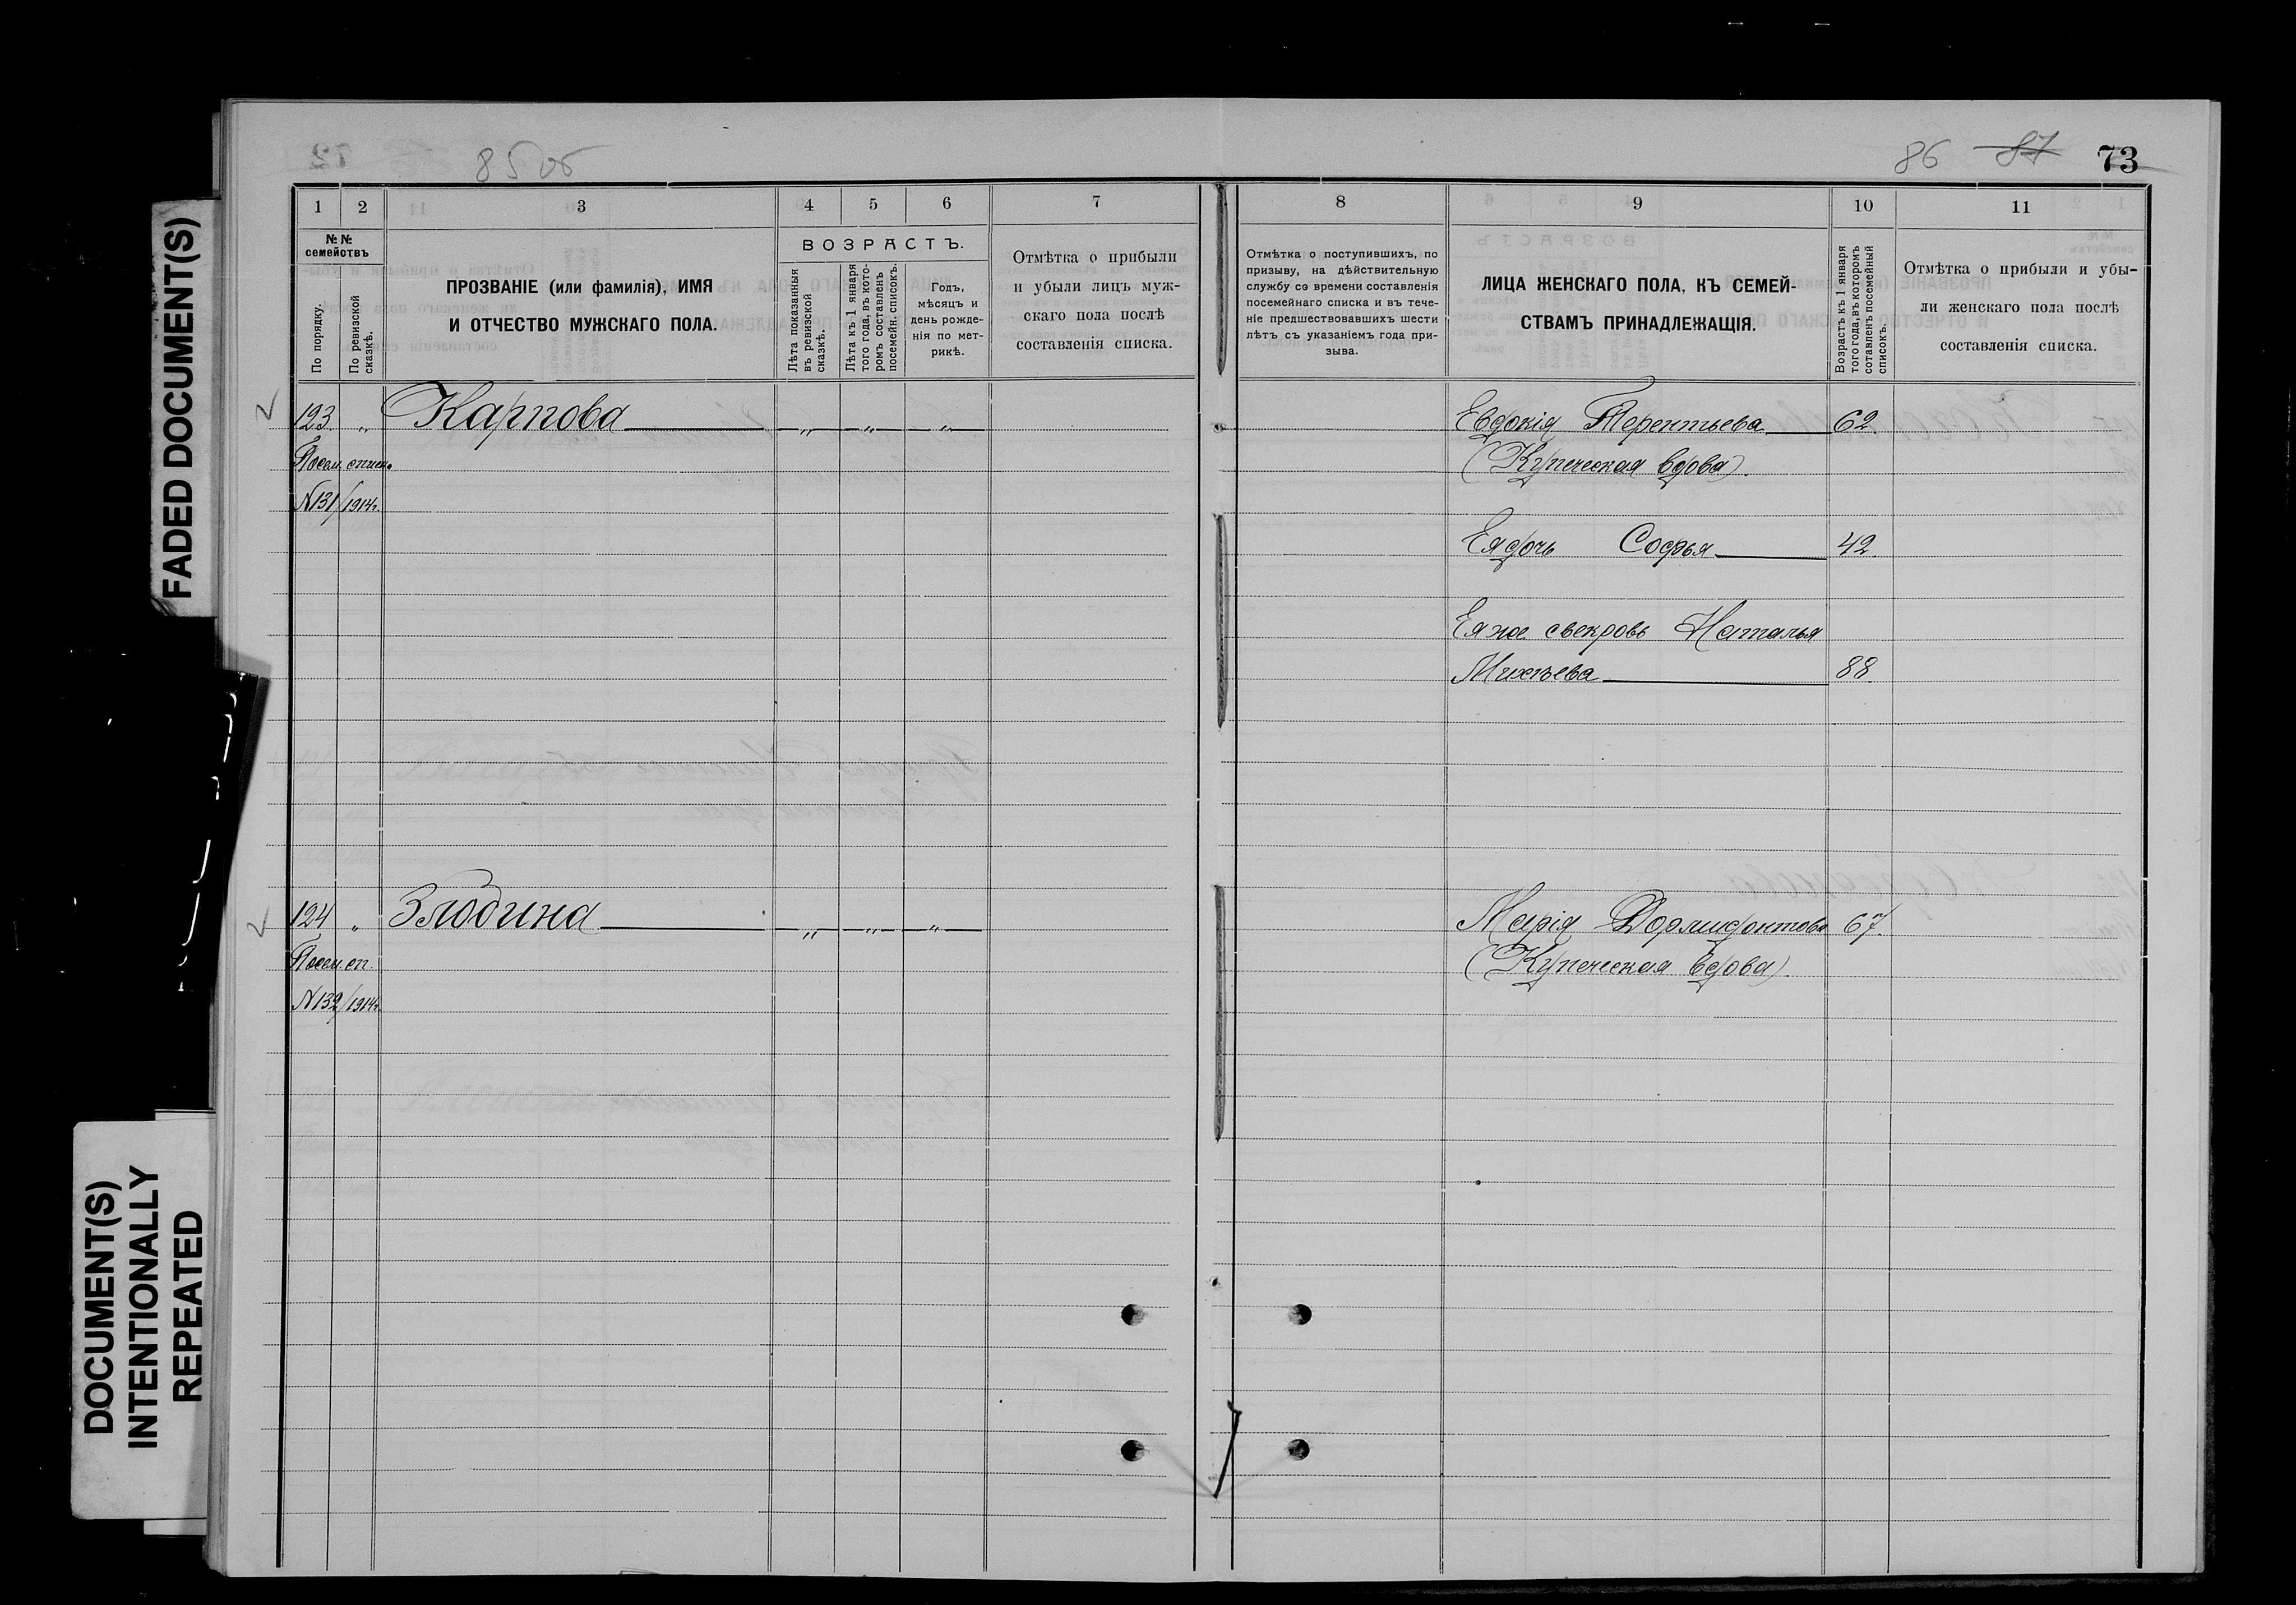 FADED DOCUMENT(S)
DOCUMENT(S)
INTENTIONALLY
REPEATED
85 об
86 87 73
1 2 3 4 5 6 7
8 9 10 11
№№ семействъ
По порядку.
По ревизской сказкѣ.
ПРОЗВАНІЕ (или фамилія), ИМЯ
И ОТЧЕСТВО МУЖСКАГО ПОЛА.
ВОЗРАСТЪ.
Лѣта показанныя
въ ревизской
сказкѣ.
Лѣта къ 1 января
того года, въ кото-
ромъ составленъ
посемейн. списокъ.
Годъ,
мѣсяцъ и
день рожде-
нія по мет-
рикѣ.
Отмѣтка о прибыли
и убыли лицъ муж-
скаго пола послѣ
составленія списка.
Отмѣтка о поступившихъ, по
призыву, на дѣйствительную
службу со времени составленія
посемейнаго списка и въ тече-
ніе предшествовавшихъ шести
лѣтъ съ указаніемъ года при-
зыва.
ЛИЦА ЖЕНСКАГО ПОЛА, КЪ СЕМЕЙ-
СТВАМЪ ПРИНАДЛЕЖАЩІЯ.
Возрастъ къ 1 января
того года, въ которомъ
составленъ посемейный
списокъ.
Отмѣтка о прибыли и убы-
ли женскаго пола послѣ
составленія списка.
123. „ Карпова „ „ „ Евдокія Терентьева 62.
Посем. списк. (Купеческая вдова).
N131/1914г.
Ея дочь Софья 42.
Ея же свекровь Наталья
Михѣева 88.
124 „ Злобина „ „ „ Марія Дормидонтова 67.
Посем. сп. (Купеческая вдова).
N132/1914г.